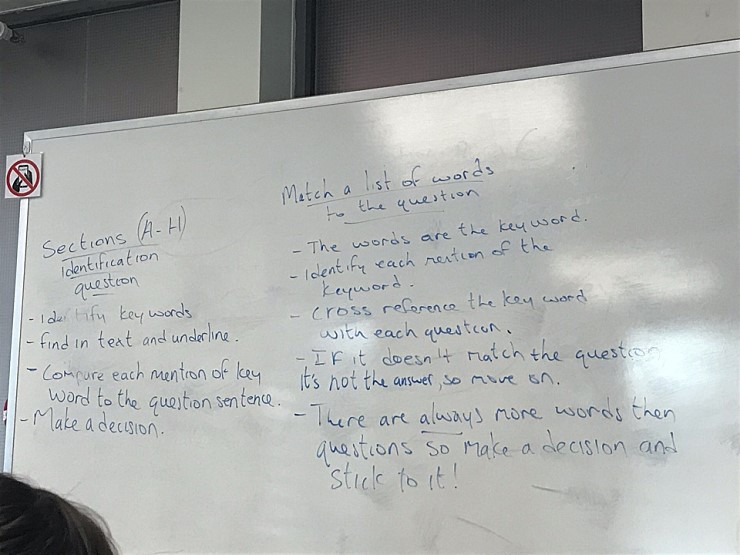 Sections (A-H)
Identification
question
- Identify key words
- find in text and underline.
- Compare each mention of key
word to the question sentence.
- Make a decision.
Match a list of words
to the question
- The words are the key word.
- Identify each mention of the
keyword.
- Cross reference the key word
with each question.
- IF it doesn't match the question
it's not the answer, so move on.
- There are always more words then
questions so make a decision and
stick to it!